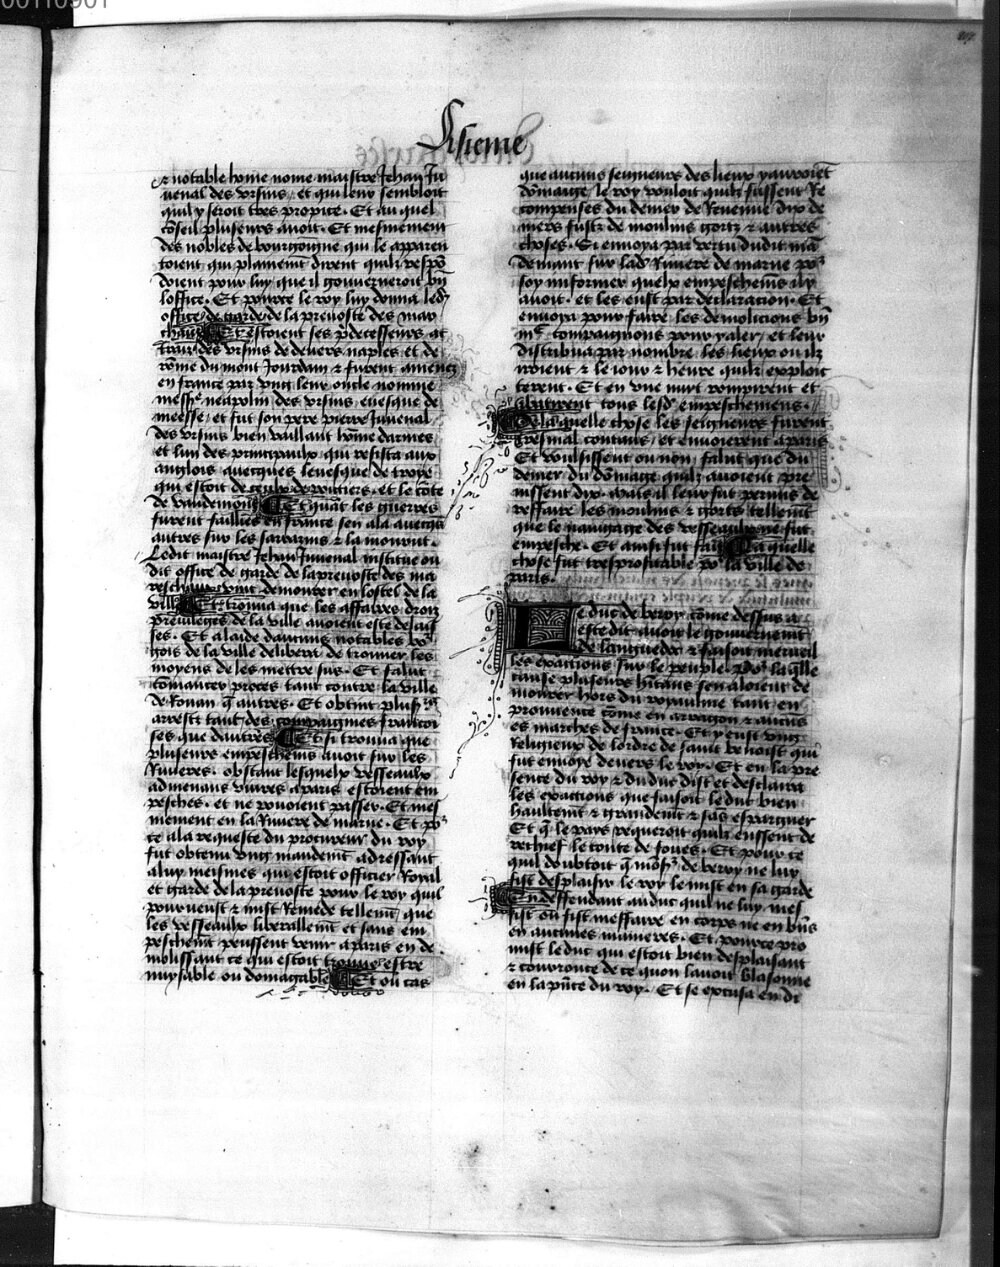 00110901
Sisieme
et notable home nome maistre Jehan Ju
uenal des vrsins / et qui leur sembloit
quil y seroit tres propice. Et au quel
cõseil plusieurs auoit. Et mesmement
des nobles de bourgoigne qui le apparen
toient qui plainemt dirent quilz respõ
doient pour luy que il gouuerneroit bñ
loffice. Et pource le roy luy donna led
office de garde de la preuoste des mar
chans Et estoient ses pdecesseurs at
traiz des vrsins de deuers naples et de
rõme du mont Jourdain & furent amenez
en france par vng leur oncle nomme
messe neapolin des vrsins euesque de
meesse / et fut son pere pierre Juuenal
des vrsins bien vaillant hõme darmes
et lun des principaulx qui resista aux
anglois auecques leuesque de troye
qui estoit de ceulx de poitiers. et le cõte
de vaudemons Et quãt les guerres
furent faillies en france sen ala auecqs
autres sur les sarrazins & la mourut.
Ledit maistre Jehan Juuenal institue ou
dit office de garde de la preuoste des ma
reschaux vint demourer en lostel de la
ville Et trouua que les affaires droiz
preuileges de la ville auoient este delais
ses. Et a laide daucuns notables bo
gois de la ville delibera de trouuer les
moyens de les mettre sus. Et falut
cõmancer proces tant contre la ville
de Rouan q autres. Et obtint plus
arrestz tant des compaignies francoi
ses que dautres Et si trouua que
plusieurs empeschemens auoit sur les
Riuieres. obstant lesquelx vesseaulx
admenans viures a paris estoient em
pesches. et ne pouoient passer. Et mes
mement en la Riuiere de marne. Et po
ce a la requeste du procureur du roy
fut obtenu vng mandemt adressant
a luy mesmes qui estoit officier Royal
et garde de la preuoste pour le roy quil
pourueust & mist Remede tellemt que
les vesseaulx liberallemt et sans em
peschemt peussent venir a paris en de
moliss ant ce qui estoit trouue estre
nuysable ou domagable Et ou cas
que aucuns seigneurs des lieux y auroiẽt
dõmaige le roy vouloit quilz fussent Re
compenses du denier de Reuenue dix de
niers fustz de moulins gortz & autres
choses. Si enuoya par vertu dudit mã
demant sur lad Riuiere de marne po
soy informer quelx empeschems il y
auoit. et les eust par declaracion. Et
enuoya pour faire les demolicions bñ
iii c compaignons pour y aler / et leur
distribua par nombre les lieux ou ilz
iroient & le iour & heure quilz exploit
teront. Et en vne nuit rompirent et
abatirent tous lesd empeschemens.
De la quelle chose les seigneurs furent
tresmal contans / et enuoierent a paris
Et voulsissent ou non / falut que du
denier du dõmage quilz auoient pre
nissent dix. Mais il leur fut permis de
reffaire les moulins & gorts tellemt
que le nauigage des vesseaulx ne fut
empesche. Et ainsi fut fait La quelle
chose fut tresprofitable po la ville de
paris.
Le duc de berry cõme dessus a
este dit auoit le gouuernemt
de languedoc & faisoit merueil
les exactions sur le peuple. Po laqlle
cause plusieurs hitans sen aloient de
mourer hors du royaulme tant en
prouuence cõme en arragon & aucũs
es marches de france. Et y eust vng
Religieux de lordre de saint benoist qui
fut enuoye deuers le roy. Et en la pre
sence du roy & du duc dist et desclaira
les exactions que faisoit le duc bien
haultemt & grandemt & sãs espargner
Et q le pays requeroit quilz eussent de
rechief le conte de foues. Et pour ce
quil doubtoit q mõs de berry ne luy
fist desplaisir le roy le mist en sa garde
En deffendant au duc quil ne luy mef
fist ou fist meffaire en corps ne en biẽs
en aucunes manieres. Et pource pro
mist le duc qui estoit bien desplaisant
& couronce de ce quon lauoit blasonne
en la pñce du roy. Et se excusa en di